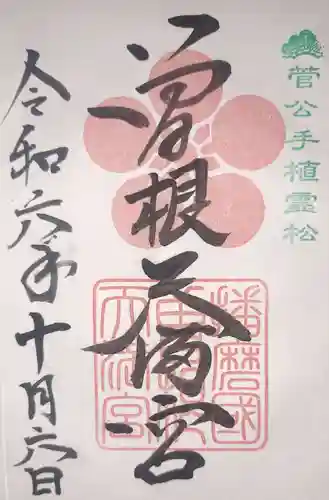 菅公手植霊松
曽根天満宮
播磨国
曽根
天満宮
令和六年十月六日